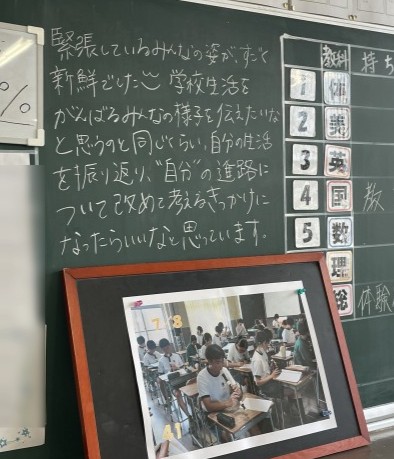 緊張しているみんなの姿が、すごく
新鮮でした 学校生活を
がんばるみんなの様子を伝えたいな
と思うのと同じくらい、自分の生活
を振り返り、"自分"の進路に
ついて改めて考えるきっかけに
なったらいいなと思っています。
%
教科 持ち
1 体
2 美
3 英
4 国
5 数
理
総 体験
7/8